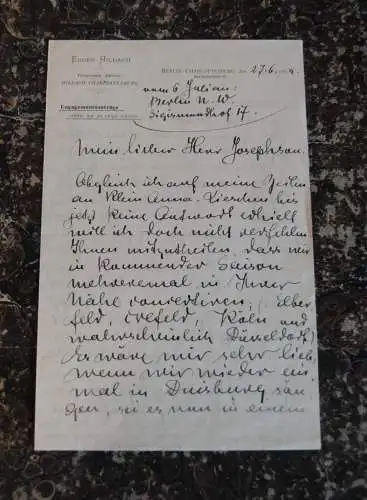 EUGEN HILDACH
Telegramm-Adresse:
HILDACH CHARLOTTENBURG
BERLIN-CHARLOTTENBURG, den 27.6.
Engagementsanträge
vom 6 Julian:
Berlin N. W.
Sigismundhof 17.
Mein lieber Herr Josephson.
Obgleich ich auf meine Zeilen
an Klein Anna-Lieschen bis
jetzt keine Antwort erhielt
will ich doch nicht verfehlen
Ihnen mitzutheilen, dass wir
in kommender Saison
mehreremal in Ihrer
Nähe concertiren, (Elber
feld, Crefeld, Köln und
wahrscheinlich Düsseldorf)
Es wäre mir sehr lieb,
wenn wir wieder ein
mal in Duisburg sän
gen, sei es nun in einem